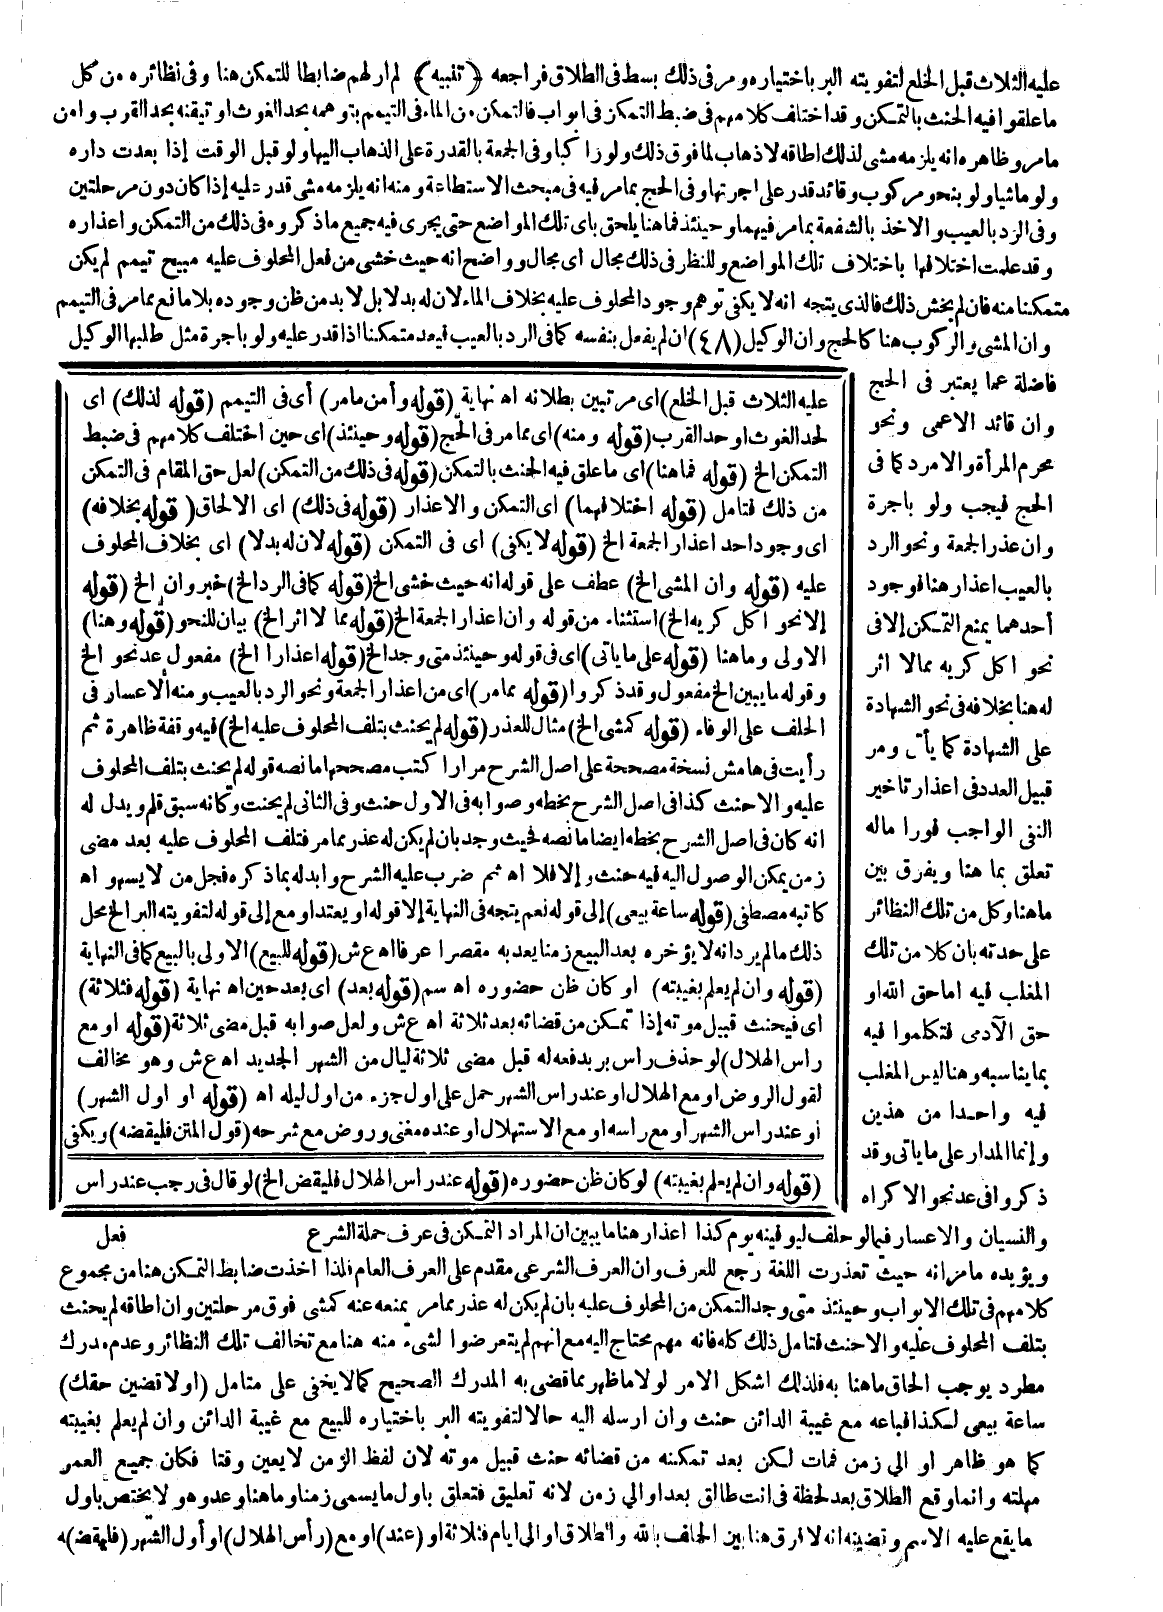 عليه الثلاث قبل الخلع لتفويته البر باختياره ومر فى ذلك بسط فى الطلاق فراجعه (تنبيه) لم ار لهم ضابطا للتمكن هنا وفى نظائره من كل
ما علقوا فيه الحنث بالتمكن وقد اختلف كلامهم فى ضبط التمكن فى ابواب فالتمكن من الماء فى التيمم بتوهمه بحد الغوث او تيقنه بحد القرب وامن
مامر وظاهره انه يلزمه مشى لذلك اطاقه لا ذهاب لما فوق ذلك ولو راكبا وفى الجمعة بالقدرة على الذهاب اليها ولو قبل الوقت إذا بعدت داره
ولو ماشيا ولو بنحو مركوب وقائد قدر على اجرتها وفى الحج بما مر فيه فى مبحث الاستطاعة ومنه انه يلزمه مشى قدر عليه إذا كان دون مرحلتين
وفى الرد بالعيب والاخذ بالشفعة بما مر فيهما وحينئذ فما هنا يلحق باى تلك المواضع حتى يجرى فيه جميع ما ذكروه فى ذلك من التمكن واعذاره
وقد علمت اختلافها باختلاف تلك المواضع وللنظر فى ذلك مجال اى مجال وواضح انه حيث خشى من فعل المحلوف عليه مبيح تيمم لم يكن
متمكنا منه فان لم يخش ذلك فالذى يتجه انه لا يكفى توهم وجود المحلوف عليه بخلاف الماء لان له بدلا بل لا بد من ظن وجوده بلا مانع بما مر فى التيمم
وان المشى والركوب هنا كالحج وان الوكيل (٤٨) ان لم يفعل بنفسه كما فى الرد بالعيب فيعد متمكنا اذا قدر عليه ولو باجرة مثل طلبها الوكيل
فاضلة عما يعتبر فى الحج
وان قائد الاعمى ونحو
محرم المرأة والامرد كما فى
الحج فيجب ولو باجرة
وان عذر الجمعة ونحو الرد
بالعيب اعذار هنا فوجود
أحدهما يمنع التمكن إلا فى
نحو اكل كريه مما لا اثر
له هنا بخلافه فى نحو الشهادة
على الشهادة كما يأتى ومر
قبيل العدد فى اعذار تاخير
النفى الواجب فورا ماله
تعلق بما هنا ويفرق بين
ما هنا وكل من تلك النظائر
على حدته بان كلا من تلك
المغلب فيه اما حق الله او
حق الآدمى فتكلموا فيه
بما يناسبه وهنا ليس المغلب
فيه واحدا من هذين
وإنما المدار على ما ياتى وقد
ذكروا فى عد نحو الاكراه
والنسيان والاعسار فيما لو حلف ليوفينه يوم كذا اعذار هنا ما يبين ان المراد التمكن فى عرف حملة الشرع
ويؤيده ما مر انه حيث تعذرت اللغة رجع للعرف وان العرف الشرعى مقدم على العرف العام فلذا اخذت ضابط التمكن هنا من مجموع
كلامهم فى تلك الابواب وحينئذ متى وجد التمكن من المحلوف عليه بان لم يكن له عذر بما مر يمنعه عنه كمشى فوق مرحلتين وان اطاقه لم يحنث
بتلف المحلوف عليه والا حنث فتامل ذلك كله فانه مهم محتاج اليه مع انهم لم يتعرضوا لشىء منه هنا مع تخالف تلك النظائر وعدم مدرك
مطرد يوجب الحاق ما هنا به فلذلك اشكل الامر لولا ما ظهر مما قضى به المدرك الصحيح كما لا يخفى على متامل (او لاقضين حقك)
ساعة بيعى لكذا فباعه مع غيبة الدائن حنث وان ارسله اليه حالا لتفويته البر باختياره للبيع مع غيبة الدائن وان لم يعلم بغيبته
كما هو ظاهر او الى زمن فمات لكن بعد تمكنه من قضائه حنث قبيل موته لان لفظ الزمن لا يعين وقتا فكان جميع العمر
مهلته وانما وقع الطلاق بعد لحظة فى انت طالق بعد او الى زمن لانه تعليق فتعلق باول ما يسمى زمنا وما هنا وعد وهو لا يختص باول
ما يقع عليه الاسم وقضيته انه لا فرق هنا بين الحلف بالله والطلاق او الى ايام فثلاثة او (عند) او مع (رأس الهلال) او أول الشهر (فليقضه)
فعل
عليه الثلاث قبل الخلع) اى مر تبين بطلانه اه نهاية (قوله وأمن مامر) أى فى التيمم (قوله لذلك) اى
لحد الغوث او حد القرب (قوله ومنه) اى مما مر فى الحج (قوله وحينئذ) اى حين اختلف كلامهم فى ضبط
التمكن الخ (قوله فما هنا) اى ما علق فيه الحنث بالتمكن (قوله فى ذلك من التمكن) لعل حق المقام فى التمكن
من ذلك فتامل (قوله اختلافهما) اى التمكن والاعذار (قوله فى ذلك) اى الالحاق (قوله بخلافه)
اى وجود احد اعذار الجمعة الخ (قوله لا يكفى) اى فى التمكن (قوله لان له بدلا) اى بخلاف المحلوف
عليه (قوله وان المشى الخ) عطف على قوله انه حيث خشى الخ (قوله كما فى الرد الخ) خبر وان الخ (قوله
إلا نحو اكل كريه الخ) استثناء من قوله وان اعذار الجمعة الخ (قوله مما لا اثر الخ) بيان للنحو (قوله وهنا)
الاولى وما هنا (قوله على ما ياتى) اى فى قوله وحينئذ متى وجد الخ (قوله اعذارا الخ) مفعول عد نحو الخ
وقوله ما يبين الخ مفعول وقد ذكروا (قوله مما مر) اى من اعذار الجمعة ونحو الرد بالعيب ومنه الاعسار فى
الحلف على الوفاء (قوله كمشى الخ) مثال للعذر (قوله لم يحنث بتلف المحلوف عليه الخ) فيه وقفة ظاهرة ثم
رأيت فى هامش نسخة مصححة على اصل الشرح مرارا كتب مصححها ما نصه قوله لم يحنث بتلف المحلوف
عليه والا حنث كذا فى اصل الشرح بخطه وصوابه فى الاول حنث وفى الثانى لم يحنث وكانه سبق قلم ويدل له
انه كان فى اصل الشرح بخطه ايضا ما نصه فحيث وجد بان لم يكن له عذر مما مر فتلف المحلوف عليه بعد مضى
زمن يمكن الوصول اليه فيه حنث وإلا فلا اه ثم ضرب عليه الشرح وابدله بما ذكره فجل من لا يسهو اه
كاتبه مصطفى (قوله ساعة بيعى) إلى قوله نعم يتجه فى النهاية إلا قوله او يعتد او مع إلى قوله لتفويته البر الخ محل
ذلك ما لم يرد انه لا يؤخره بعد البيع زمنا يعد به مقصرا عرفا اه ع ش (قوله للبيع) الاولى بالبيع كما فى النهاية
(قوله وان لم يعلم بغيبته) او كان ظن حضوره اه سم (قوله بعد) اى بعد حين اه نهاية (قوله فثلاثة)
اى فيحنث قبيل موته إذا تمكن من قضائه بعد ثلاثة اه ع ش ولعل صوابه قبل مضى ثلاثة (قوله او مع
راس الهلال) لو حذف راس بر بدفعه له قبل مضى ثلاثة ليال من الشهر الجديد اه ع ش وهو مخالف
لقول الروض او مع الهلال او عند راس الشهر حمل على اول جزء من اول ليله اه (قوله او اول الشهر)
او عند راس الشهر او مع راسه او مع الاستهلال او عنده مغنى وروض مع شرحه (قول المتن فليقضه) ويكفى
(قوله وان لم يعلم بغيبته) لو كان ظن حضوره (قوله عند راس الهلال فليقض الخ) لو قال فى رجب عند راس